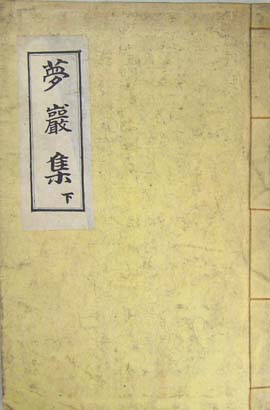 夢巖集下